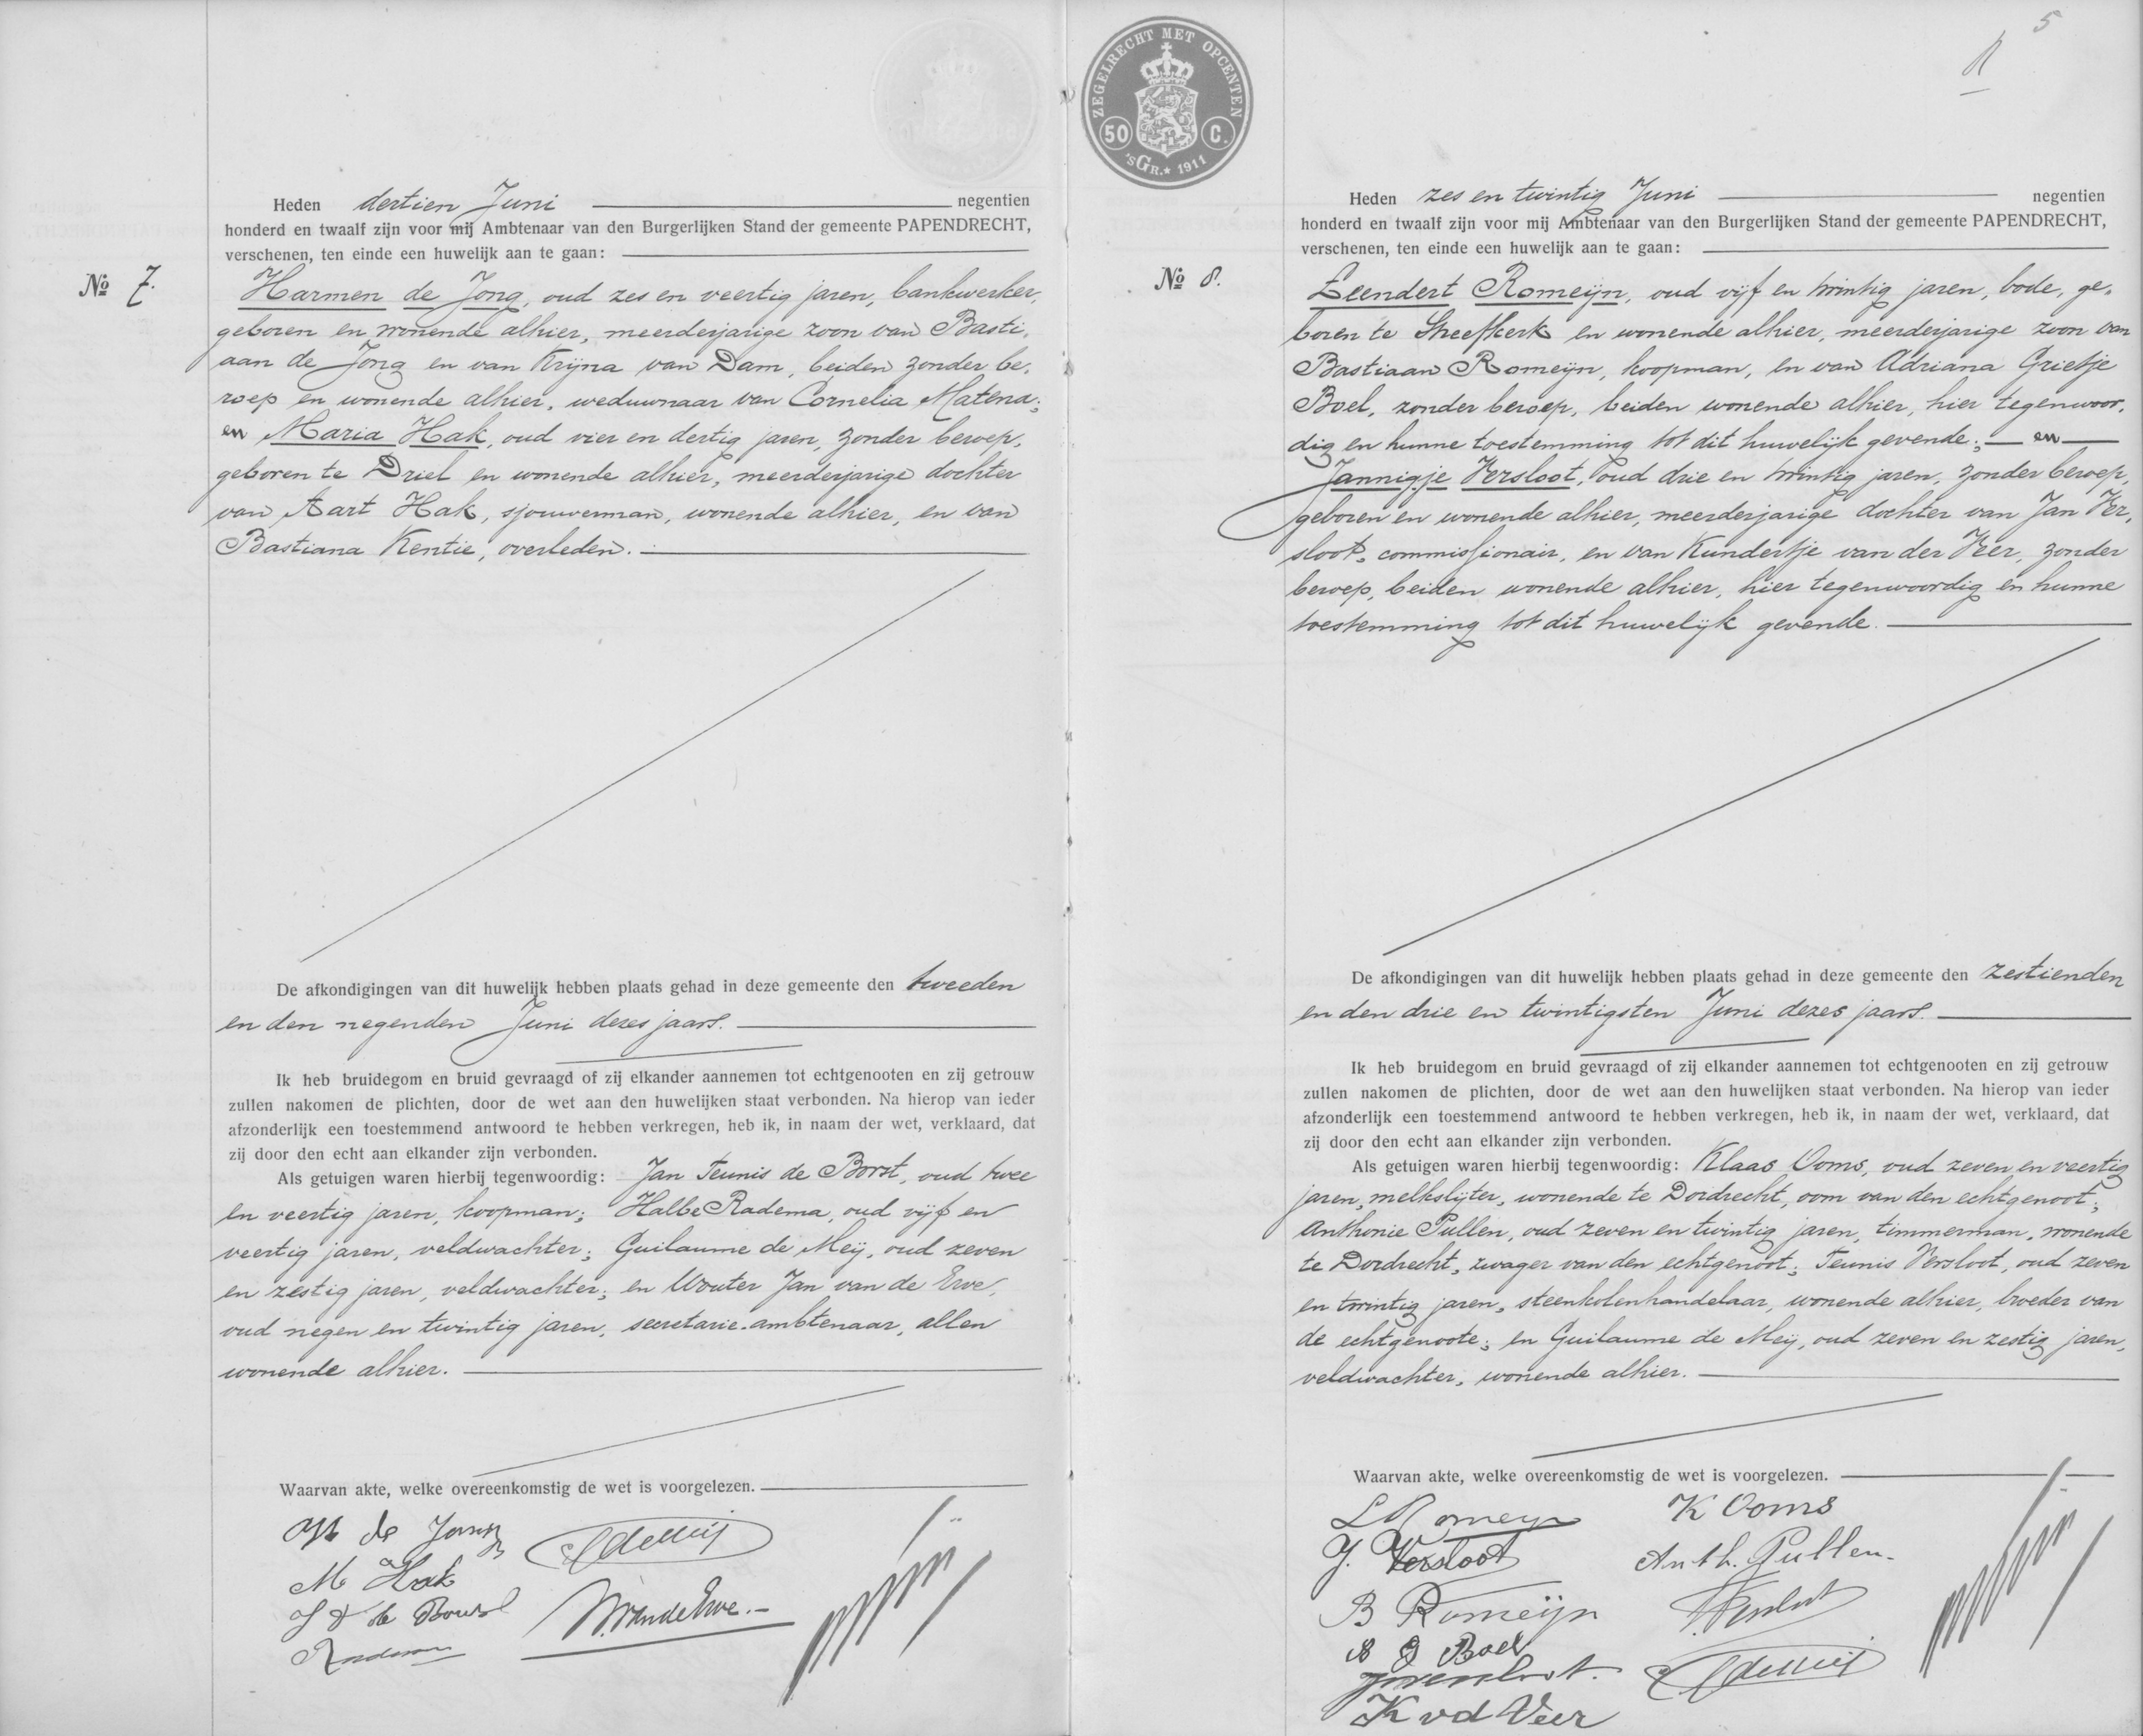 Heden dertien Juni negentien
honderd en twaalf zijn voor mij Ambtenaar van den Burgerlijken Stand der gemeente PAPENDRECHT,
verschenen, ten einde een huwelijk aan te gaan:
No 7.
Harmen de Jong, oud zes en veertig jaren, bankwerker,
geboren en wonende alhier, meerderjarige zoon van Basti-
aan de Jong en van Krijna van Dam, beiden zonder be-
roep en wonende alhier, weduwnaar van Cornelia Matena;
en Maria Hak, oud vier en dertig jaren, zonder beroep,
geboren te Driel en wonende alhier, meerderjarige dochter
van Aart Hak, sjouwerman, wonende alhier, en van
Bastiana Kentie, overleden.
De afkondigingen van dit huwelijk hebben plaats gehad in deze gemeente den tweeden
en den negenden Juni dezes jaars.
Ik heb bruidegom en bruid gevraagd of zij elkander aannemen tot echtgenooten en zij getrouw
zullen nakomen de plichten, door de wet aan den huwelijken staat verbonden. Na hierop van ieder
afzonderlijk een toestemmend antwoord te hebben verkregen, heb ik, in naam der wet, verklaard, dat
zij door den echt aan elkander zijn verbonden.
Als getuigen waren hierbij tegenwoordig: Jan Teunis de Borst, oud twee
en veertig jaren, koopman; Halbe Radema, oud vijf en
veertig jaren, veldwachter; Guilaume de Meij, oud zeven
en zestig jaren, veldwachter; en Wouter Jan van de Erve,
oud negen en twintig jaren, secretarie-ambtenaar, allen
wonende alhier.
Waarvan akte, welke overeenkomstig de wet is voorgelezen.
H de Jong
GdeMeij
M Hak
J T de Borst
W.J.vandeErve.
Radema
5
ZEGELRECHT MET OPCENTEN
50 C.
'sGR. 1911
Heden zes en twintig Juni negentien
honderd en twaalf zijn voor mij Ambtenaar van den Burgerlijken Stand der gemeente PAPENDRECHT,
verschenen, ten einde een huwelijk aan te gaan:
No 8.
Leendert Romeijn, oud vijf en twintig jaren, bode, ge-
boren te Streefkerk en wonende alhier, meerderjarige zoon van
Bastiaan Romeijn, koopman, en van Adriana Grietje
Boel, zonder beroep, beiden wonende alhier, hier tegenwoor-
dig en hunne toestemming tot dit huwelijk gevende; en
Jannigje Versloot, oud drie en twintig jaren, zonder beroep,
geboren en wonende alhier, meerderjarige dochter van Jan Ver-
sloot, commissionair, en van Kundertje van der Veer, zonder
beroep, beiden wonende alhier, hier tegenwoordig en hunne
toestemming tot dit huwelijk gevende.
De afkondigingen van dit huwelijk hebben plaats gehad in deze gemeente den zestienden
en den drie en twintigsten Juni dezes jaars.
Ik heb bruidegom en bruid gevraagd of zij elkander aannemen tot echtgenooten en zij getrouw
zullen nakomen de plichten, door de wet aan den huwelijken staat verbonden. Na hierop van ieder
afzonderlijk een toestemmend antwoord te hebben verkregen, heb ik, in naam der wet, verklaard, dat
zij door den echt aan elkander zijn verbonden.
Als getuigen waren hierbij tegenwoordig: Klaas Ooms, oud zeven en veertig
jaren, melkslijter, wonende te Dordrecht, oom van den echtgenoot;
Anthonie Pullen, oud zeven en twintig jaren, timmerman, wonende
te Dordrecht, zwager van den echtgenoot; Teunis Versloot, oud zeven
en twintig jaren, steenkolenhandelaar, wonende alhier, broeder van
de echtgenoote; en Guilaume de Meij, oud zeven en zestig jaren,
veldwachter, wonende alhier.
Waarvan akte, welke overeenkomstig de wet is voorgelezen.
L Romeijn
K Ooms
J. Versloot
Anth. Pullen
B Romeijn
T. Versloot
A G Boel
J Versloot.
GdeMeij
K vd Veer